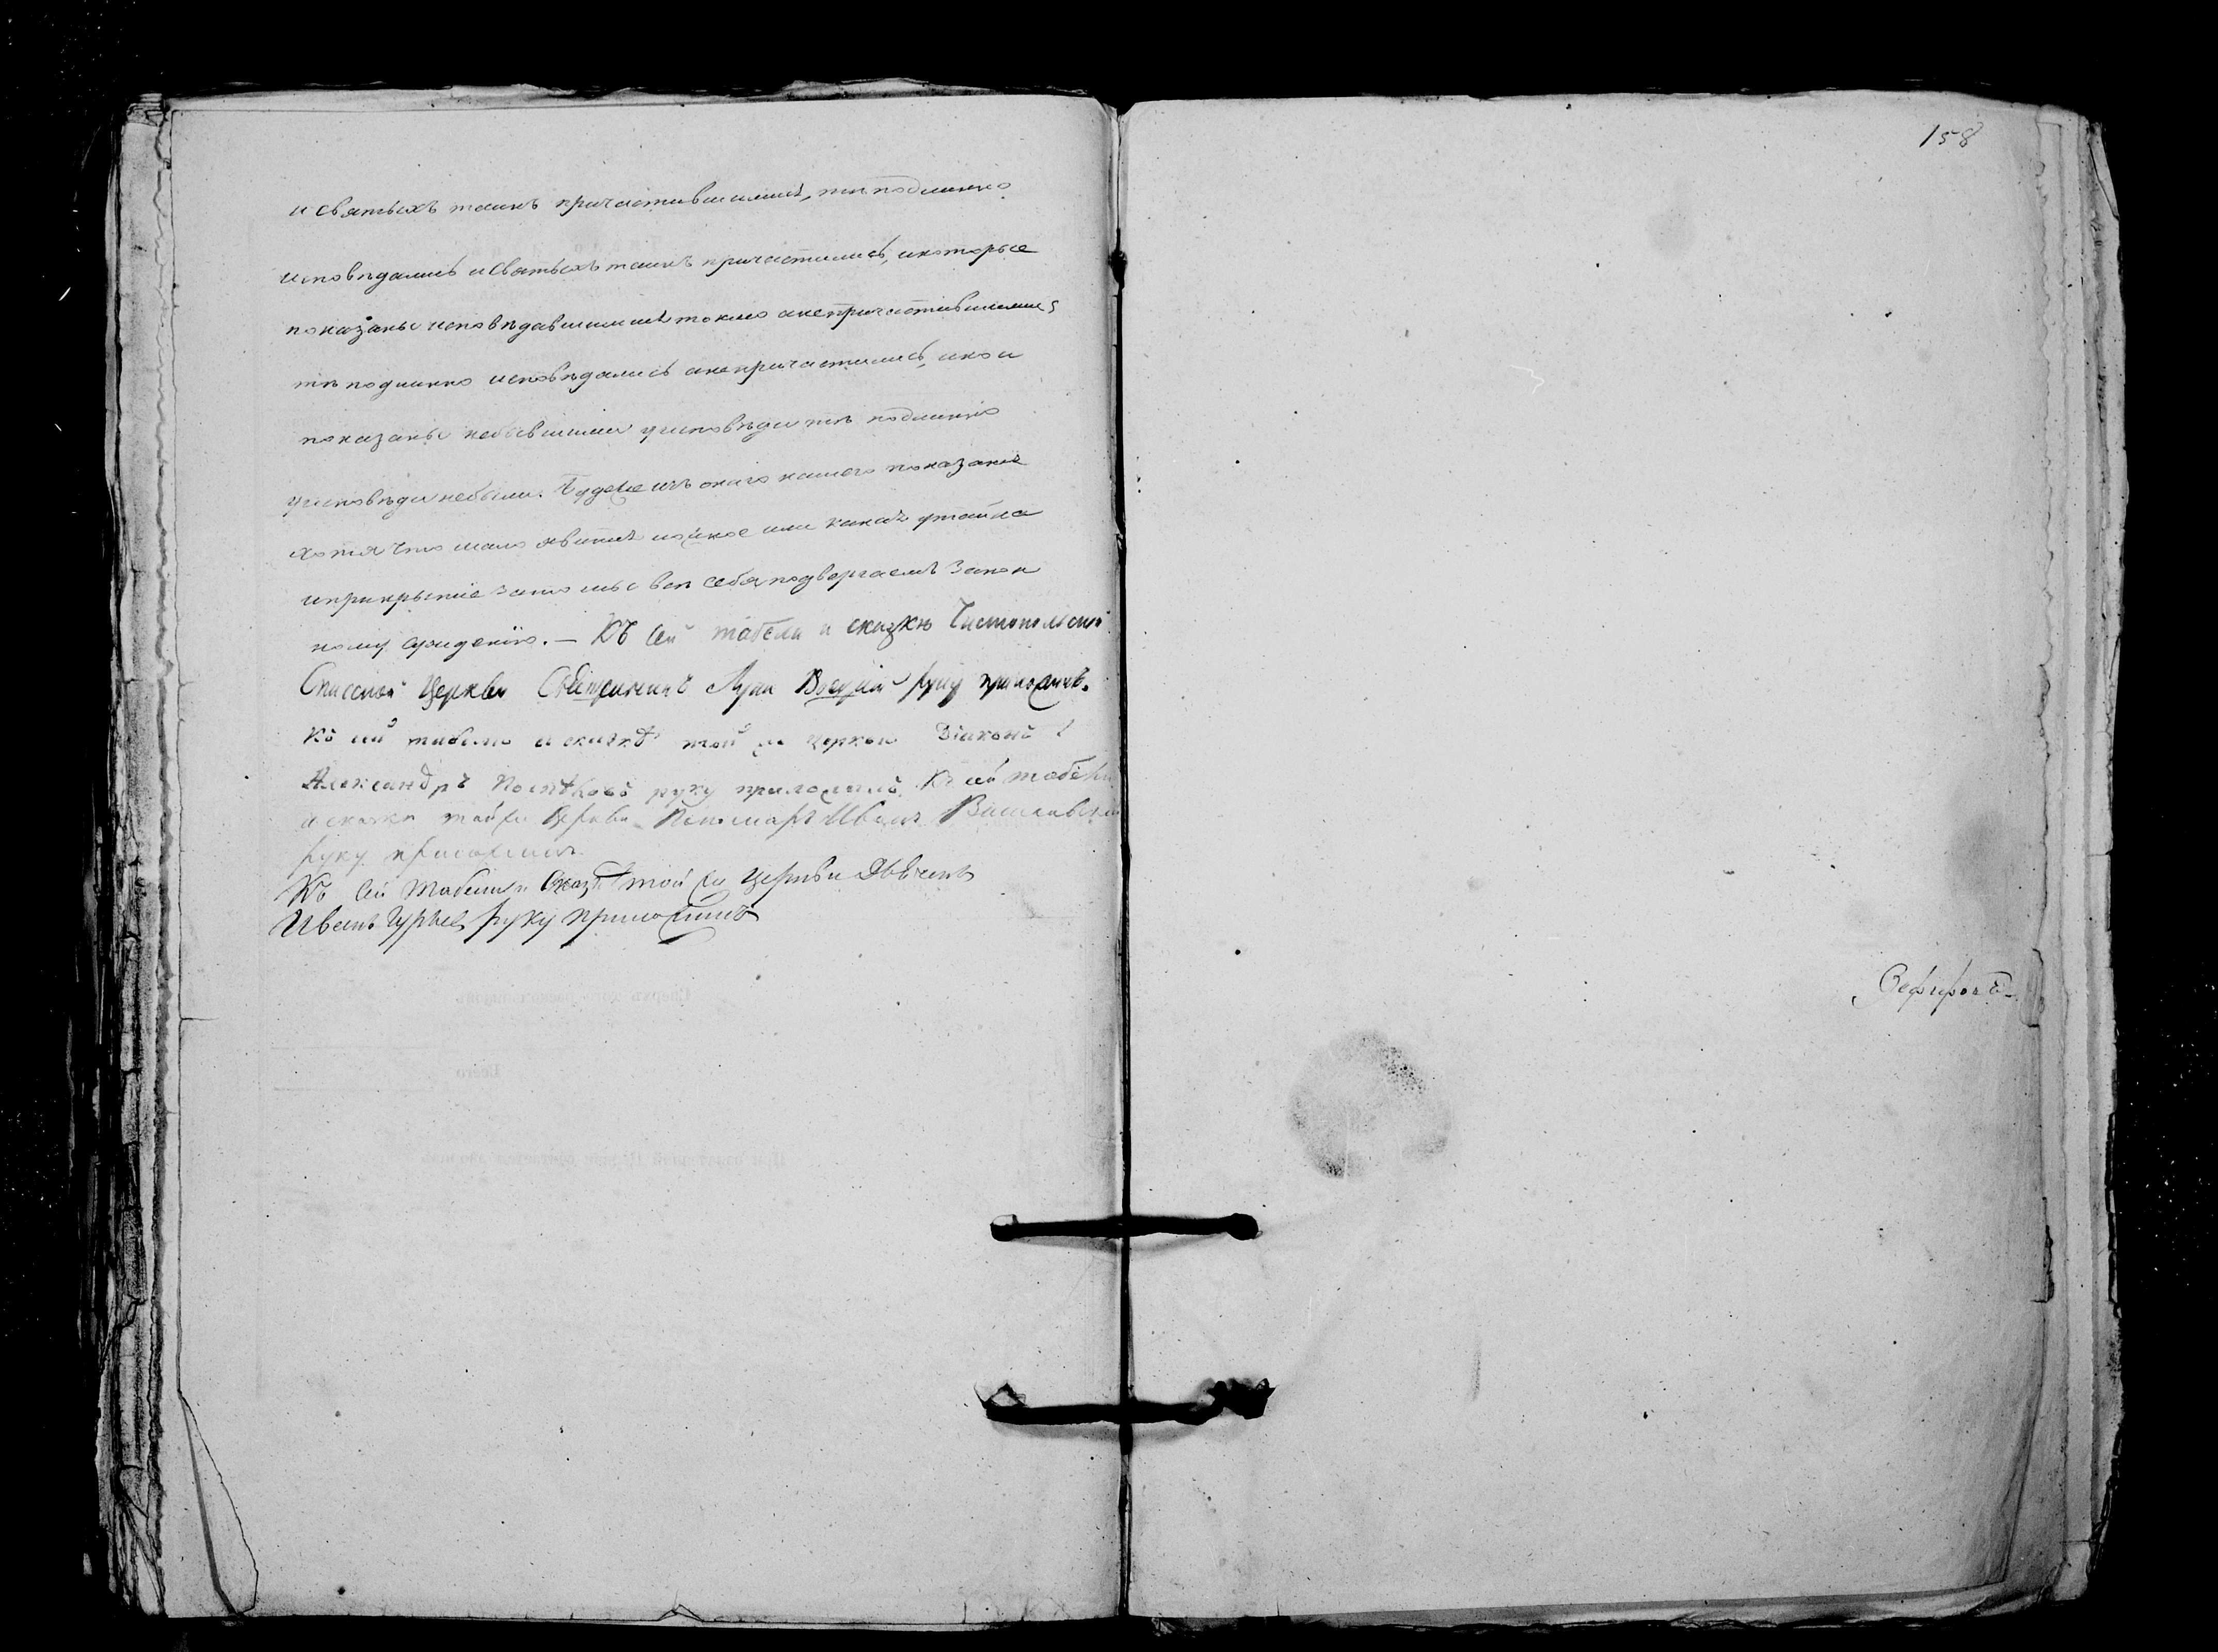 и святыхъ таинъ причастившимися, тѣ подлинно
исповѣдались и святыхъ таинъ причастились, и которые
показаны исповѣдавшимися токмо а не причастившимися
тѣ подлинно исповѣдались а не причастились, и кои
показаны небывшими у исповѣди тѣ подлинно
у исповѣди небыли. Буде же изъ онаго нашего показанія
хотя что мало явится ложное или какая утайка
и прикрытіе за то мы все себя подвергаемъ закон
ному сужденію. — Къ сей табели и сказкѣ Чистопольской
Спасской Церкви Священникъ руку приложилъ.
Къ сей табели и сказкѣ той же церкви Діаконъ
Александръ руку приложилъ. Къ сей табели
и сказки той же Церкви Пономарь Иванъ
руку приложилъ.
Къ сей Табели и Сказкѣ той же церкви
Иванъ Гурьев руку приложилъ
158